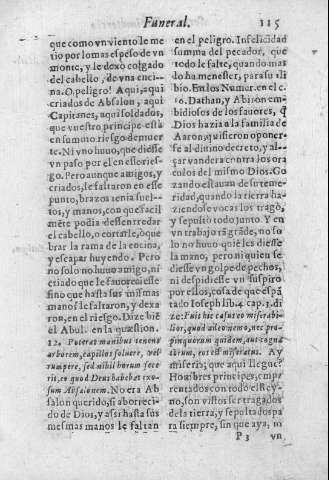 Funeral. 115
que como vn viento le me
tio por lo mas espeso de vn
monte, y le dexò colgado
del cabello, de vna enci
na. O peligro! Aqui, aqui
criados de Absalon, aqui
Capitanes, aqui soldados,
que vuestro principe està
en sumo riesgo de muer
te. Ni vno huuo, que diesse
vn paso por el en este ries-
go. Pero aunque amigos, y
criados, le faltaron en este
punto, brazos tenia suel-
tos, y manos, con que facil
mẽte podia desenrredar
el cabello, o cortarle, ò que
brar la rama de la encina,
y escapar huyendo. Pero
no solo no huuo amigo, ni
criado que le fauoreciesse
sino que hasta sus mismas
manos le faltaron, y dexa
ron, en el riesgo. Dize biẽ
el Abul. en la quæstion.
12. Poterat manibus tenens
arborem, capillos soluere, vel
rumpere, sed nihil horum fece
rit, eo quod Deus habebat exo-
sum Absalonem. No era Ab
salon querido, si aborreci-
do de Dios, y assi hasta sus
mesmas manos le faltan
en el peligro. Infelicidad
summa del pecador, que
todo le falte, quando mas
lo ha menester, para su ali
bio. En los Numer. en el c.
16. Dathan, y Abiron em-
bidiosos de los fauores, q̃
Dios hazia a la familia de
Aaron, quisieron oponer-
se al diuino decreto, y al-
çar vandera contra los ora
culos del mismo Dios. Go
zando estauan de su teme-
ridad, quando la tierra ha-
ziendose vocas los tragò,
y sepultò todo junto. Y en
vn trabajo tã grãde, no so
lo no huuo quiẽ les diesse
la mano, pero ni quien se
diesse vn golpe de pechos,
ni despidiesse vn suspiro
por ellos, cosa de que espã
tado Ioseph lib. 4. cap. 3. di-
ze: Fuit hic casus eo miserabi-
lior, quod illos nemo, nec pro-
pinquorum quidem, aut cogna
torum, eos est miseratus. Ay
miseria, que aqui llegue?
Hombres principes, empa
rentados con todo el Rey-
no, son vistos ser tragados
de la tierra, y sepultados pa
ra siempre, sin que aya, ni
P 3 vn